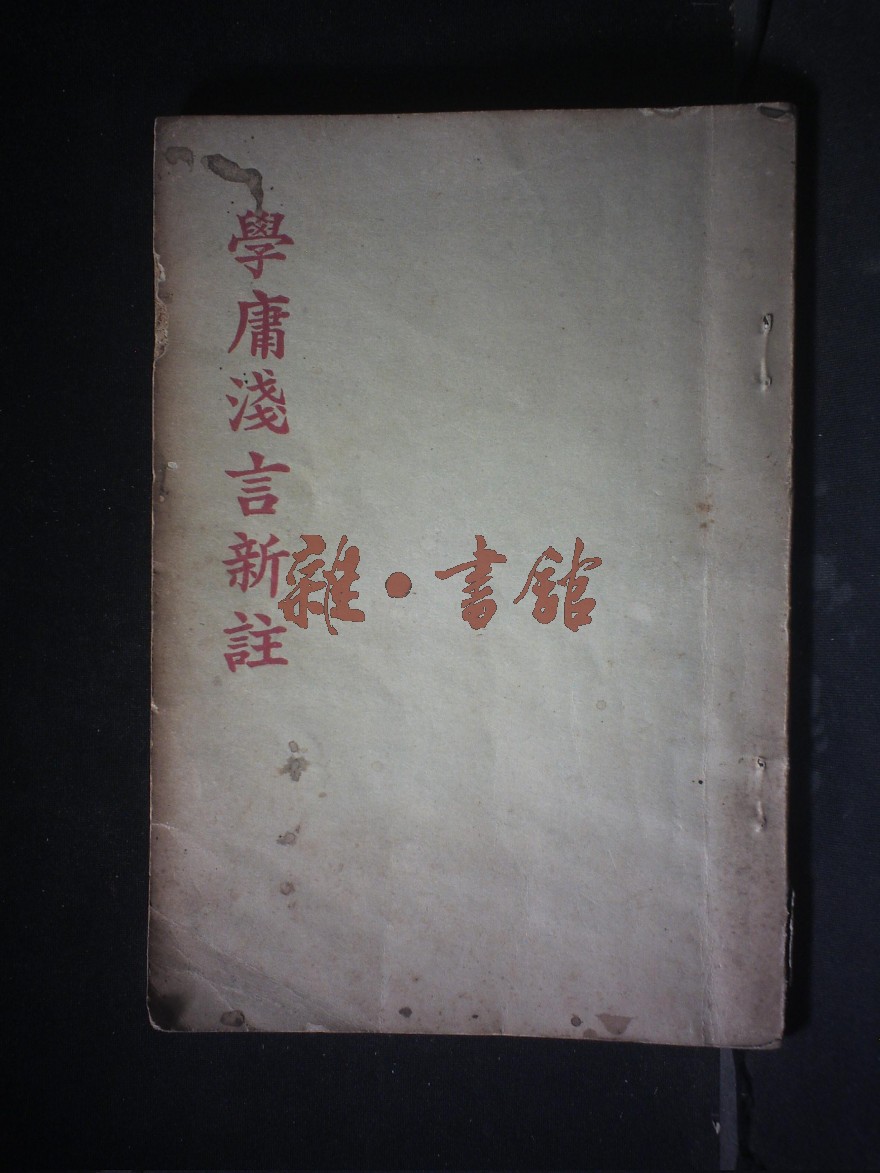 學庸淺言新註
雜·書館